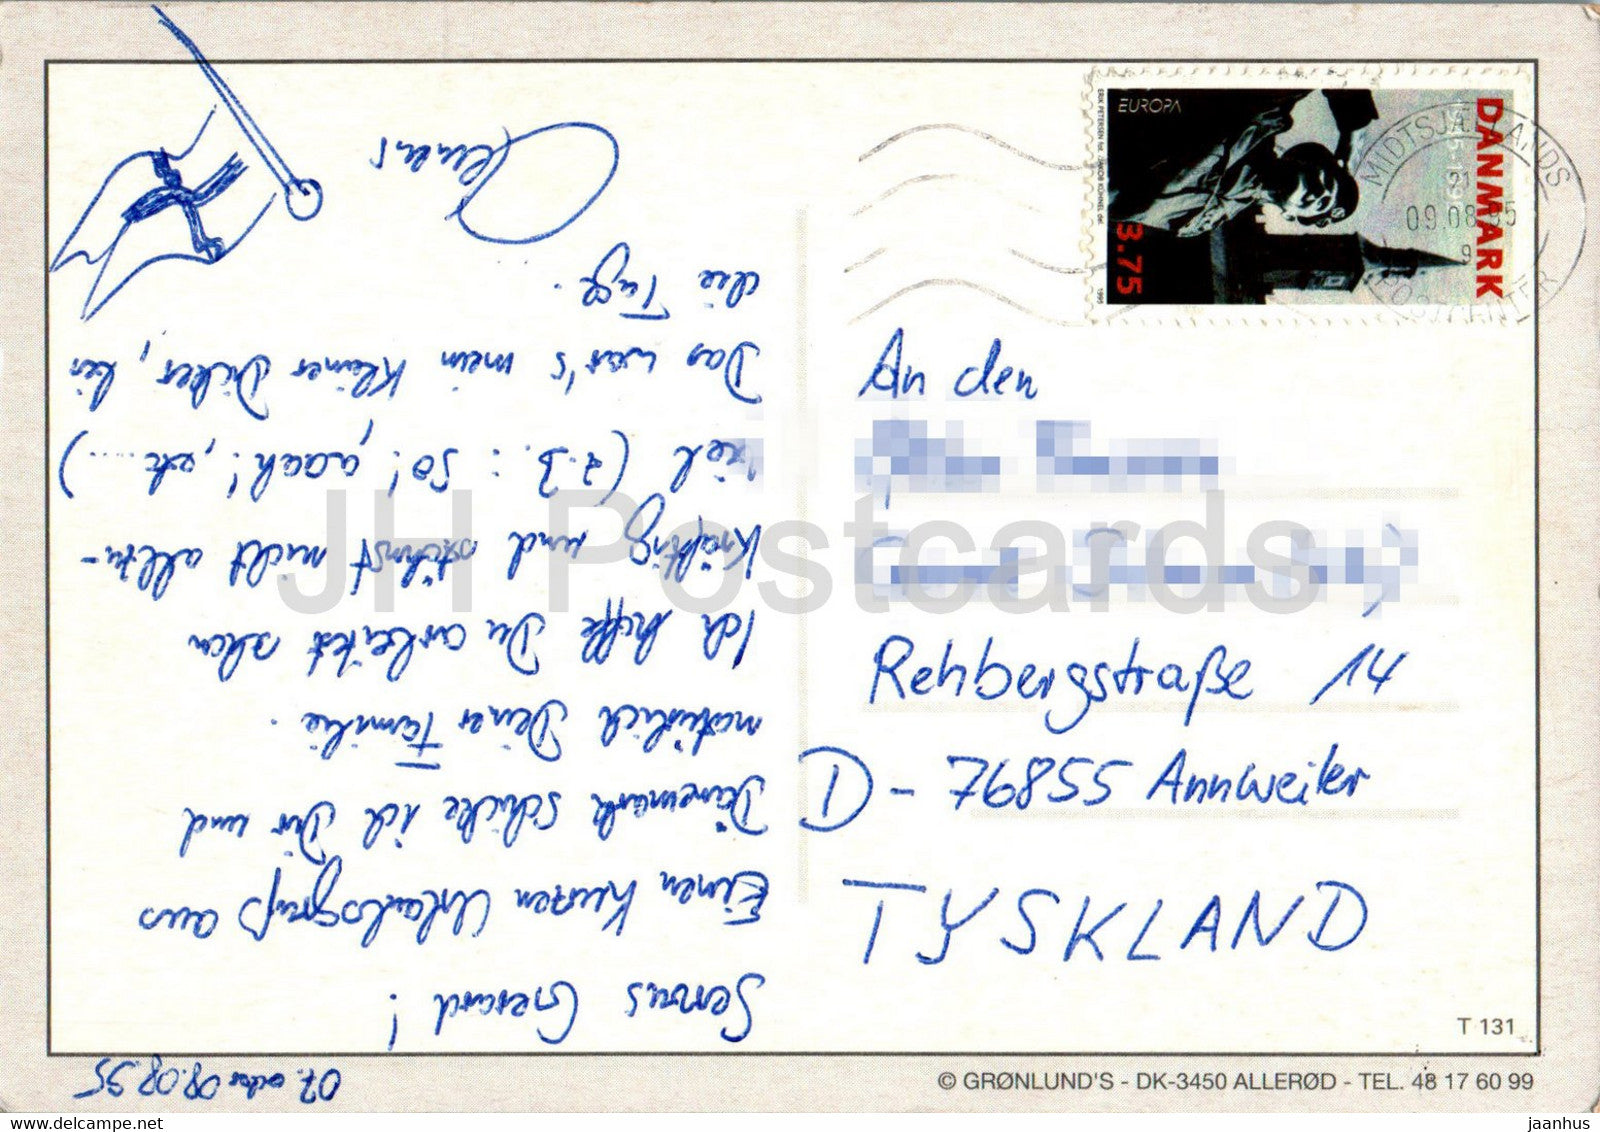 07. oder 08.08.95
Servus Gerard!
Einen kurzen Urlaubsgruß aus
Dänemark schicke ich Dir und
natürlich Deiner Familie.
Ich hoffe Du arbeitest schon
kräftig und stöhnst nicht allzu-
viel (z.B.: SO!, aach!, etc....)
Das war's mein kleiner Dicker, bis
die Tage.
EUROPA
DANMARK
3.75
1995
MIDTSJÆLLANDS
21
09.08.95
9
POSTCENTER
An den
Rehbergstraße 14
D - 76855 Annweiler
TYSKLAND
T 131
© GRØNLUND'S - DK-3450 ALLERØD - TEL. 48 17 60 99
JH Postcards
jaanhus